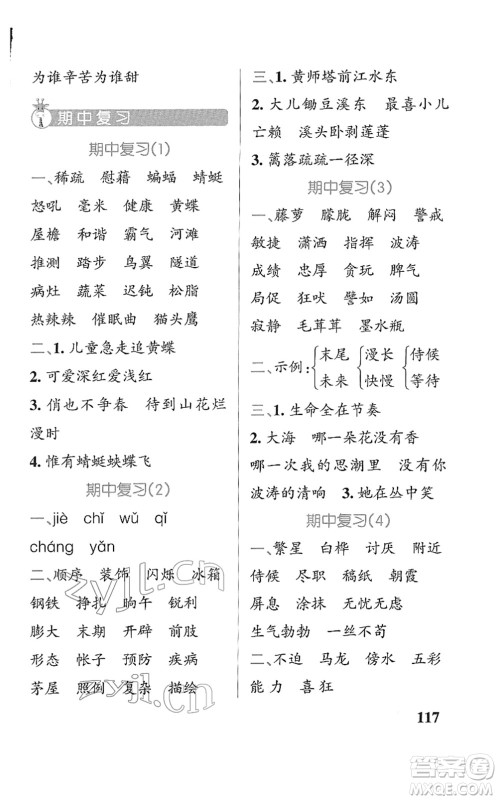 为谁辛苦为谁甜
1 期中复习
期中复习(1)
一、稀疏 慰藉 蝙蝠 蜻蜓
怒吼 毫米 健康 黄蝶
屋檐 和谐 霸气 河滩
推测 踏步 鸟翼 隧道
病灶 蔬菜 迟钝 松脂
热辣辣 催眠曲 猫头鹰
二、1. 儿童急走追黄蝶
2. 可爱深红爱浅红
3. 俏也不争春 待到山花烂
漫时
4. 惟有蜻蜓蛱蝶飞
期中复习(2)
一、jiè chǐ wǔ qǐ
cháng yǎn
二、顺序 装饰 闪烁 冰箱
钢铁 挣扎 晌午 锐利
膨大 末期 开辟 前肢
形态 帐子 预防 疾病
茅屋 照例 复杂 描绘
三、1. 黄师塔前江水东
2. 大儿锄豆溪东 最喜小儿
亡赖 溪头卧剥莲蓬
3. 篱落疏疏一径深
期中复习(3)
一、藤萝 朦胧 解闷 警戒
敏捷 潇洒 指挥 波涛
成绩 忠厚 贪玩 脾气
局促 狂吠 譬如 汤圆
寂静 毛茸茸 墨水瓶
二、示例：{末尾 未来 {漫长 快慢 {侍候 等待
三、1. 生命全在节奏
2. 大海 哪一朵花没有香
哪一次我的思潮里 没有你
波涛的清响 3. 她在丛中笑
期中复习(4)
一、繁星 白桦 讨厌 附近
侍候 尽职 稿纸 朝霞
屏息 涂抹 无忧无虑
生气勃勃 一丝不苟
二、不迫 马龙 傍水 五彩
能力 喜狂
117
zyjl.cn
zyjl.cn
答案圈
MXQE.COM